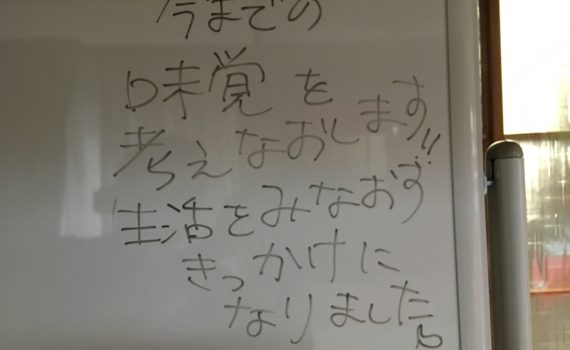 今までの
味覚を
考えなおします!!
生活をみなおす
きっかけに
なりました。